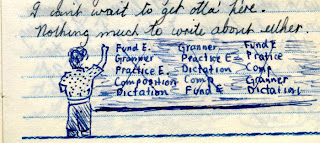 I can't wait to get otta here.
Nothing much to write about either.
Fund E. Granner Fund E
Granner Practice E Pratice
Practice E. Dictation Comp
Composition Comp Granner
Dictation Fund E Dictaiion